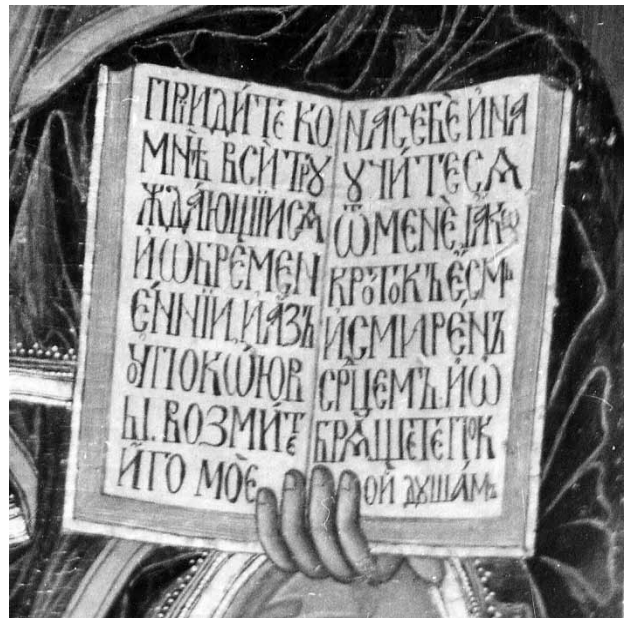 ПРїИДИ́ТЕ́ КО
МНѢ̀ ВСѝ ТРꙊ
ЖДА́ЮЩІИСѦ
И҆ ѠБРЕ́МЕН
Е́ННЇИ, И҆ А҆́ЗЪ
ᲂУПОКѠ́Ю В
Ы. ВОЗМИ́ТЕ
И҆́ГО МОЀ
НА СЕБЀ И҆ НА
ꙊЧИ́ТЕСѦ
Ѿ МЕНЀ ꙖКѠ
КРО́ТОКЪ Е҆́СМЬ
И҆ СМИРЕНЪ
СР҃ЦЕМЪ: И҆ Ѡ
БРѦ́ЩЕТЕ ПОК
ОЙ ДꙊША́МЪ